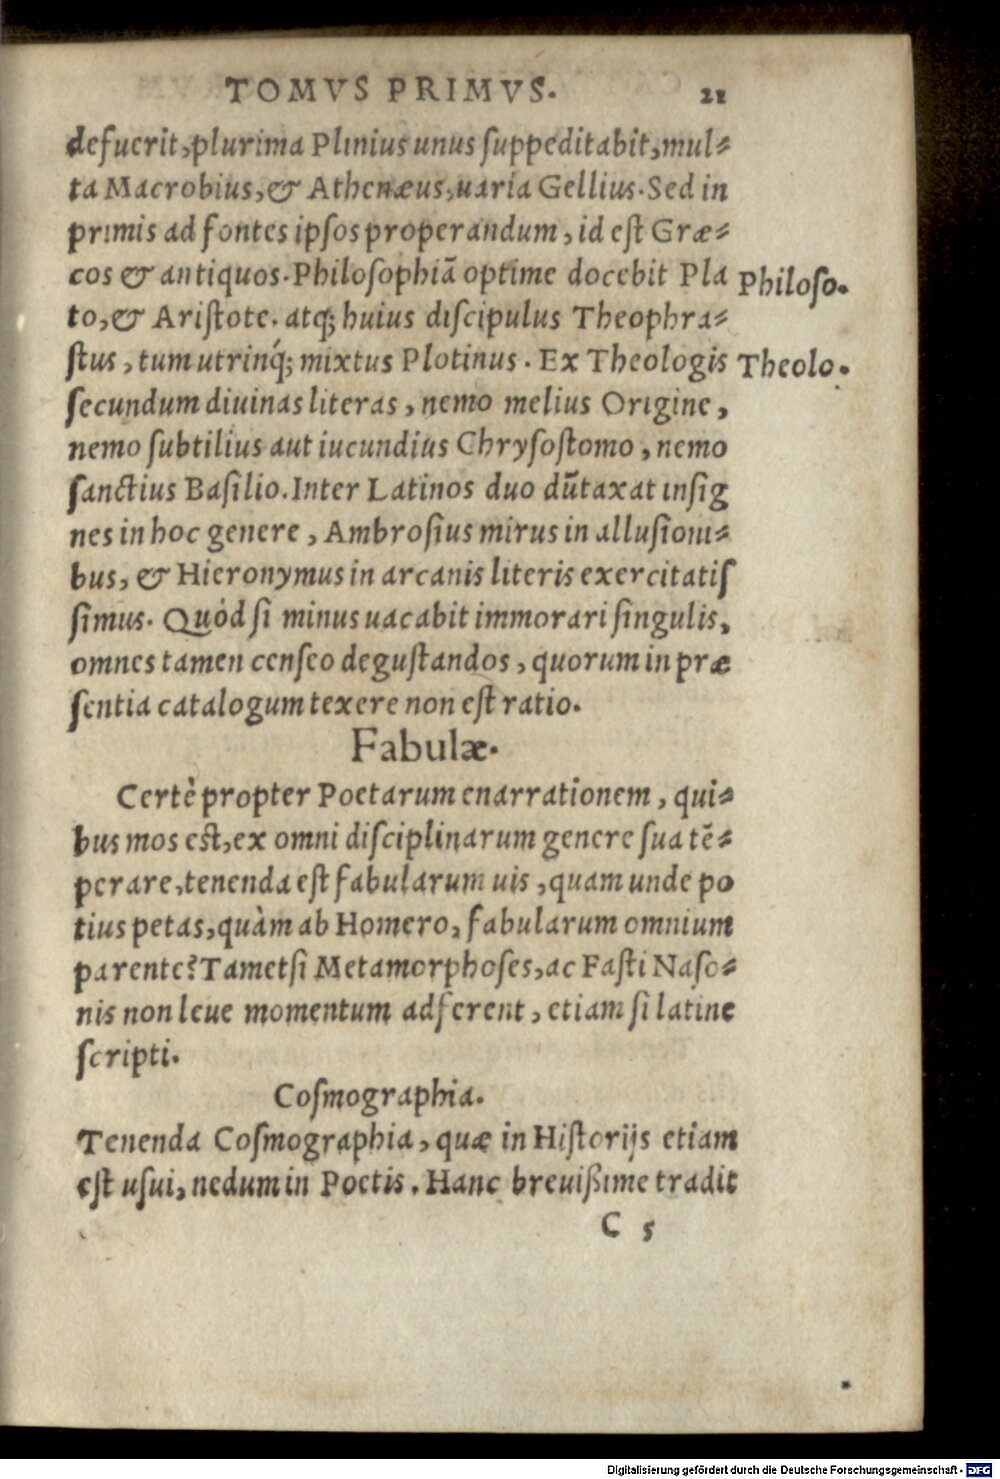 TOMVS PRIMVS. 21
defuerit, plurima Plinius unus suppeditabit, mul-
ta Macrobius, & Athenæus, uaria Gellius. Sed in
primis ad fontes ipsos properandum, id est Græ-
cos & antiquos. Philosophiā optime docebit Pla
Philoso.
to, & Aristote. atq; huius discipulus Theophra-
stus, tum utrinq́; mixtus Plotinus. Ex Theologis
Theolo.
secundum diuinas literas, nemo melius Origine,
nemo subtilius aut iucundius Chrysostomo, nemo
sanctius Basilio. Inter Latinos duo dūtaxat insig
nes in hoc genere, Ambrosius mirus in allusioni-
bus, & Hieronymus in arcanis literis exercitatis
simus. Quòd si minus uacabit immorari singulis,
omnes tamen censeo degustandos, quorum in præ
sentia catalogum texere non est ratio.
Fabulæ.
Certè propter Poetarum enarrationem, qui-
bus mos est, ex omni disciplinarum genere sua tē-
perare, tenenda est fabularum uis, quam unde po
tius petas, quàm ab Homero, fabularum omnium
parente? Tametsi Metamorphoses, ac Fasti Naso-
nis non leue momentum adferent, etiam si latine
scripti.
Cosmographia.
Tenenda Cosmographia, quæ in Historijs etiam
est usui, nedum in Poetis. Hanc breuißime tradit
C 5
Digitalisierung gefördert durch die Deutsche Forschungsgemeinschaft - DFG